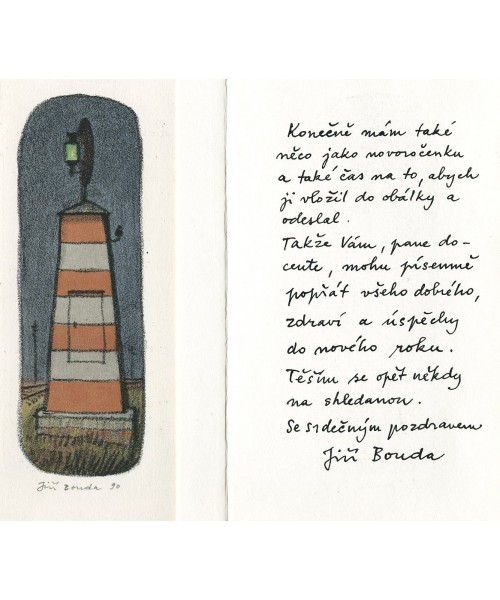 Jiří Bouda 90
Konečně mám také
něco jako novoročenku
a také čas na to, abych
ji vložil do obálky a
odeslal.
Takže Vám, pane do-
cente, mohu písemně
popřát všeho dobrého,
zdraví a úspěchy
do nového roku.
Těším se opět někdy
na shledanou.
Se srdečným pozdravem
Jiří Bouda